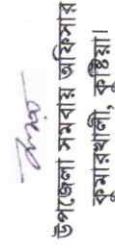 উপজেলা সমবায় অফিসার
কুমারখালী, কুষ্টিয়া।